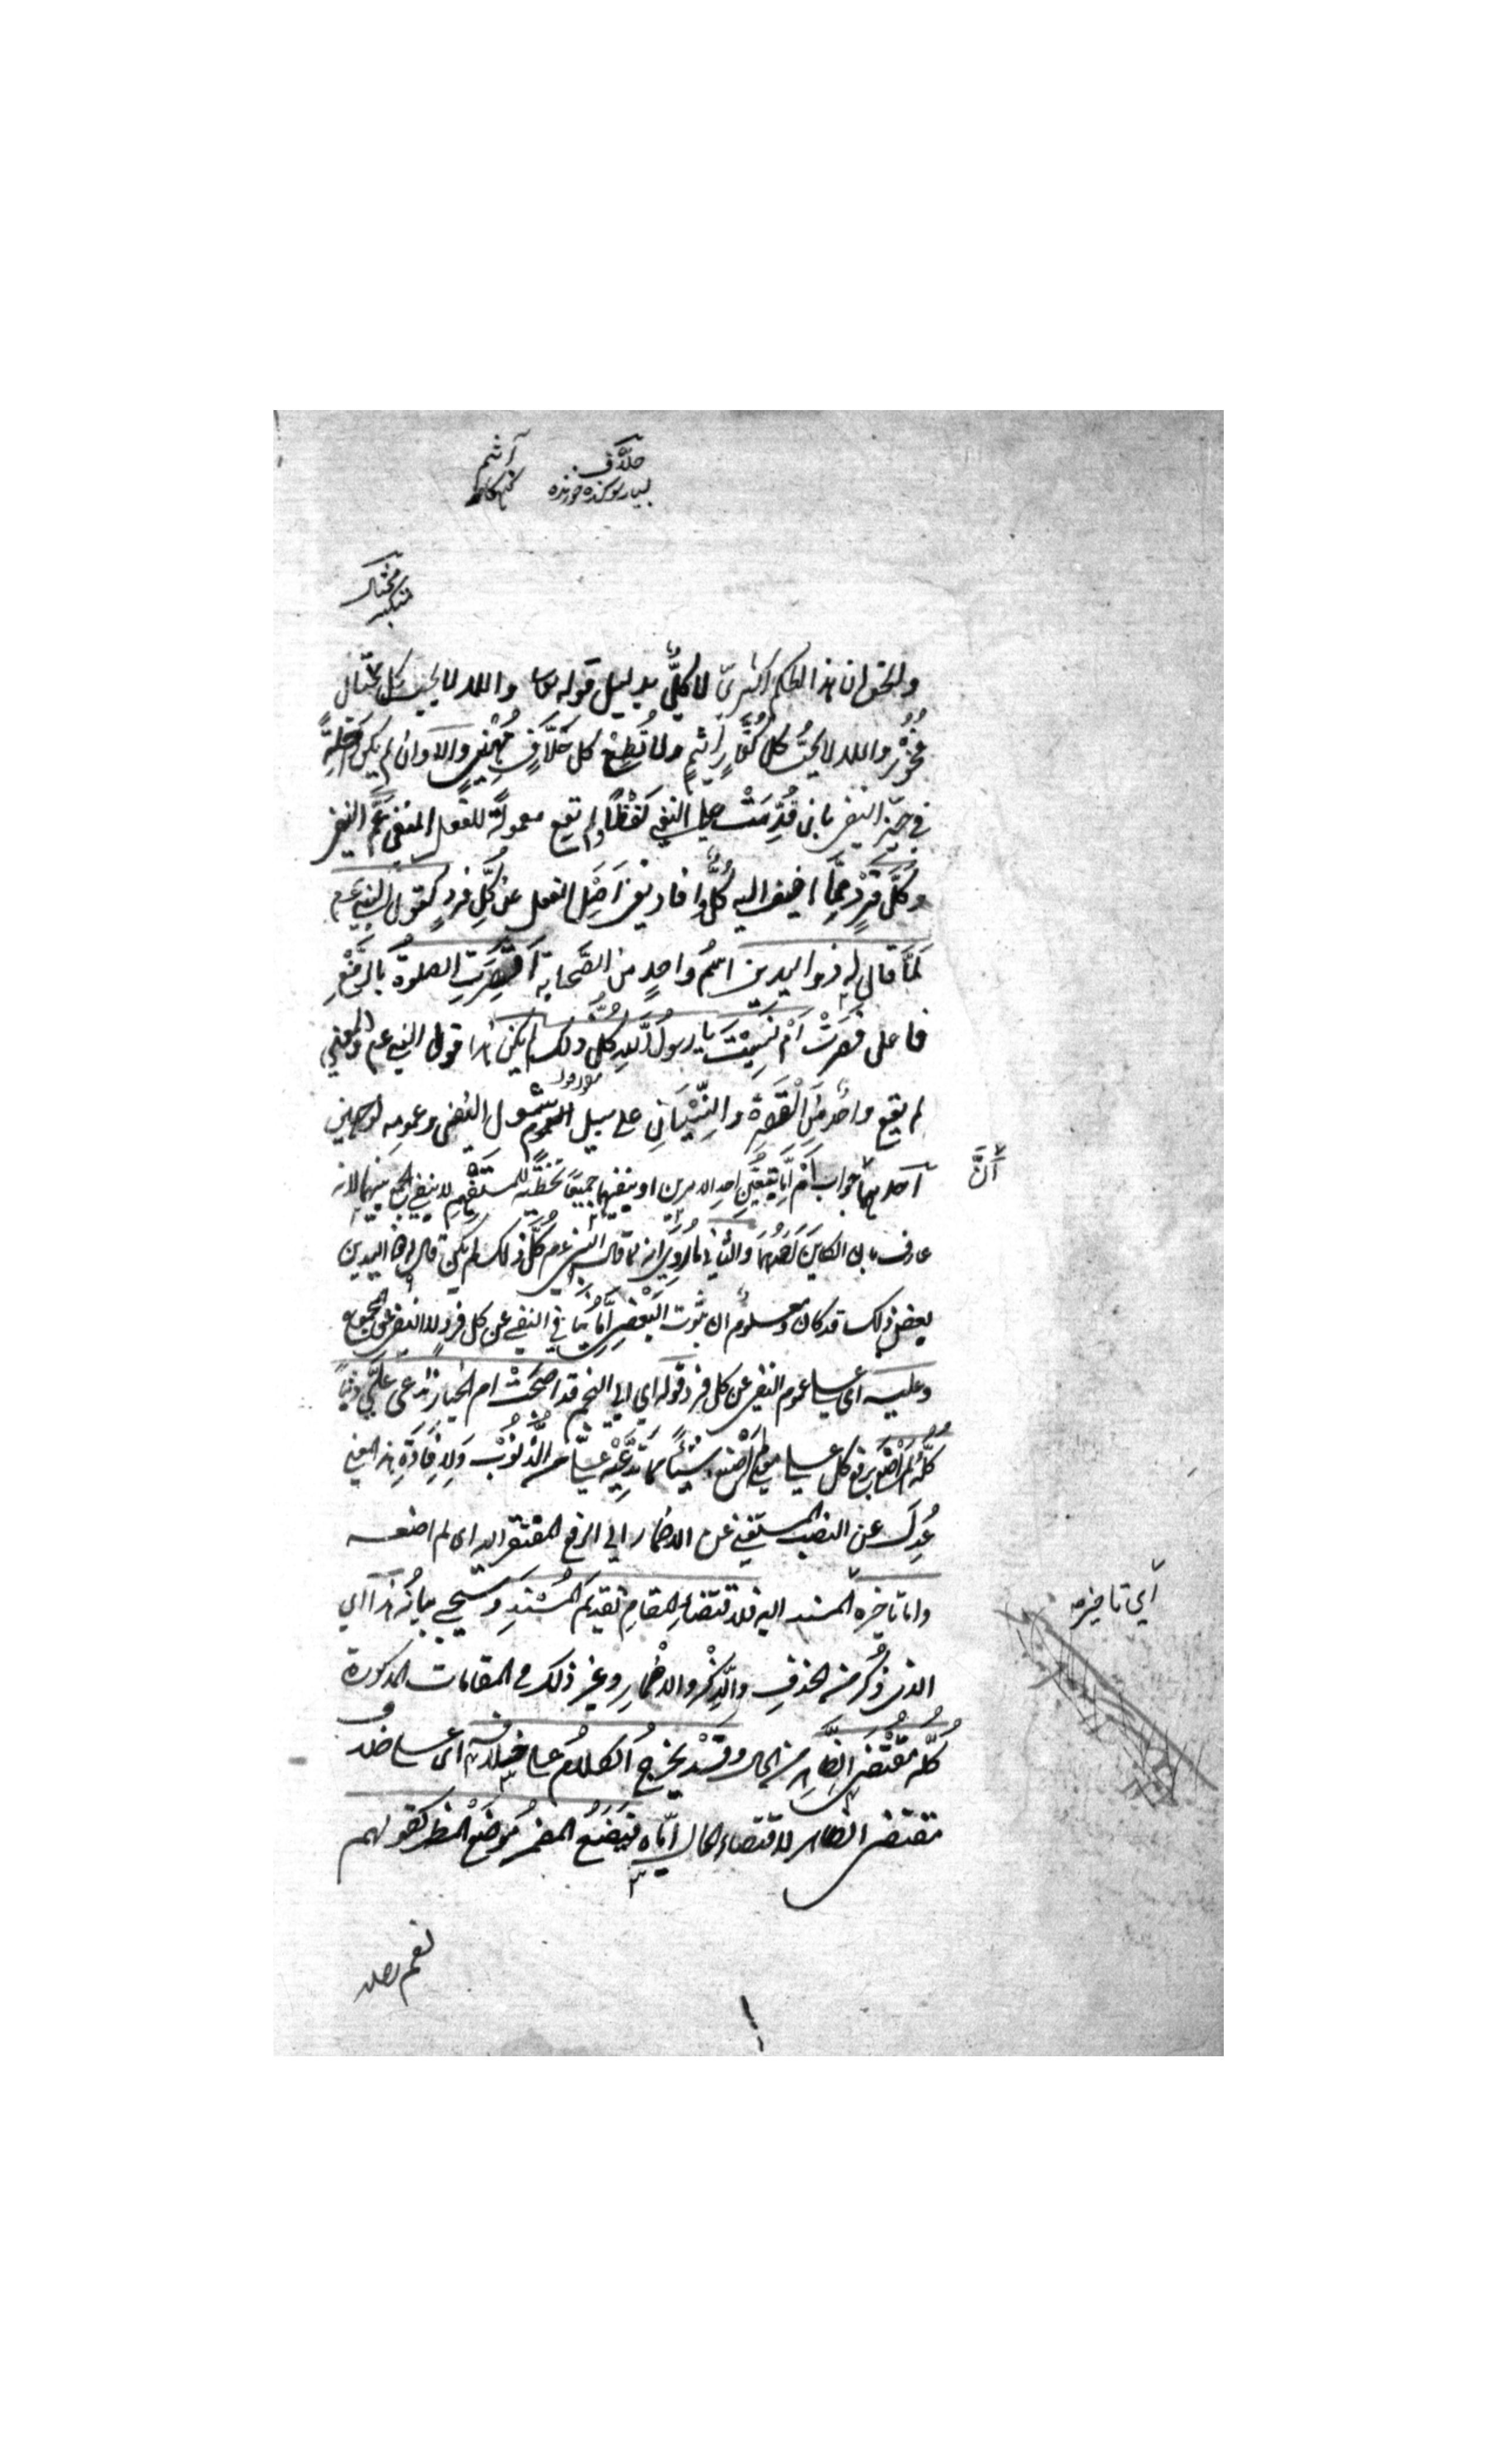 حلّاف
بسیار سوکند خورنده
آثم
کنهکار
مختال
متکبر
والحق ان هذا الحكم اكثريّ لا كليّ بدليل قوله تعالى والله لا يحب كل مختال
فخور والله لا يحبّ كل كفّار اثيم ولا تطع كل حلّاف مهين والا اى وان لم يكن داخلةً
في حيّز النفى بان قُدّمت على النفى لفظًا ولم تقع معمولة للفعل المنفى عمّ النفى
وكلّ فرد ممّا اضيف اليه كلّ وافاد نفى اصل الفعل عن كلّ فرد كقول النبى عم
لمّا قال له ذو اليدين اسم واحد من الصّحابة اقصرت الصلوة بالرّفع
فاعل قصرت أم نسيت يا رسول الله كلّ ذلك لم يكن هذا قول النبى عم والمعنى
لم يقع واحد من القصر والنّسيان على سبيل شمول النفى وعمومه لوجهين
احدهما أنّ جواب أم إمّا بتعيين احد الامرين او بنفيهما جميعًا تخطئة للمستفهم لا بنفى الجمع بينهما لانه
عارف بان الكاين احدهما والثانى ما رُوى انه لمّا قال النبى عم كلّ ذلك لم يكن قال له ذو اليدين
بعض ذلك قد كان ومعلوم ان ثبوت البعض انّما ينافى النفى عن كل فرد لا النفى عن المجموع
وعليه اى على عموم النفى عن كل فرد قوله اى ابى النجم قد اصبحت ام الخيار تدّعى علىّ ذنبًا
كلّه لم اصنع برفع كل على معنى لم اصنع شيئًا ممّا تدّعيه علىّ من الذّنوب ولافادة هذا المعنى
عُدل عن النصب المستغنى عن الاضمار الى الرفع المفتقر اليه اى لم اصنعه
واما تاخيره اى تاخير المسند اليه فلاقتضاء المقام تقديم المسند وسيجىء بيانه هذا اى
الذى ذُكر من الحذف والذّكر والاضمار وغير ذلك فى المقامات المذكورة
كلّه مقتضى الظّاهر من الحال وقد يخرج الكلام على خلافه اى على خلاف
مقتضى الظاهر لاقتضاء الحال ايّاه فيوضع المضمر موضع المظهر كقولهم
نعم رجلا
أنّ
اى تاخير